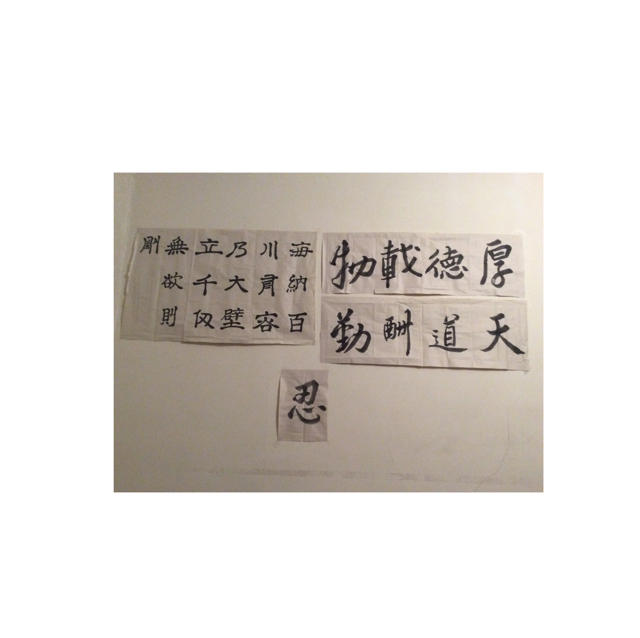 厚德載物
天道酬勤
海納百
川有容
乃大壁
立千仞
無欲則
剛
忍